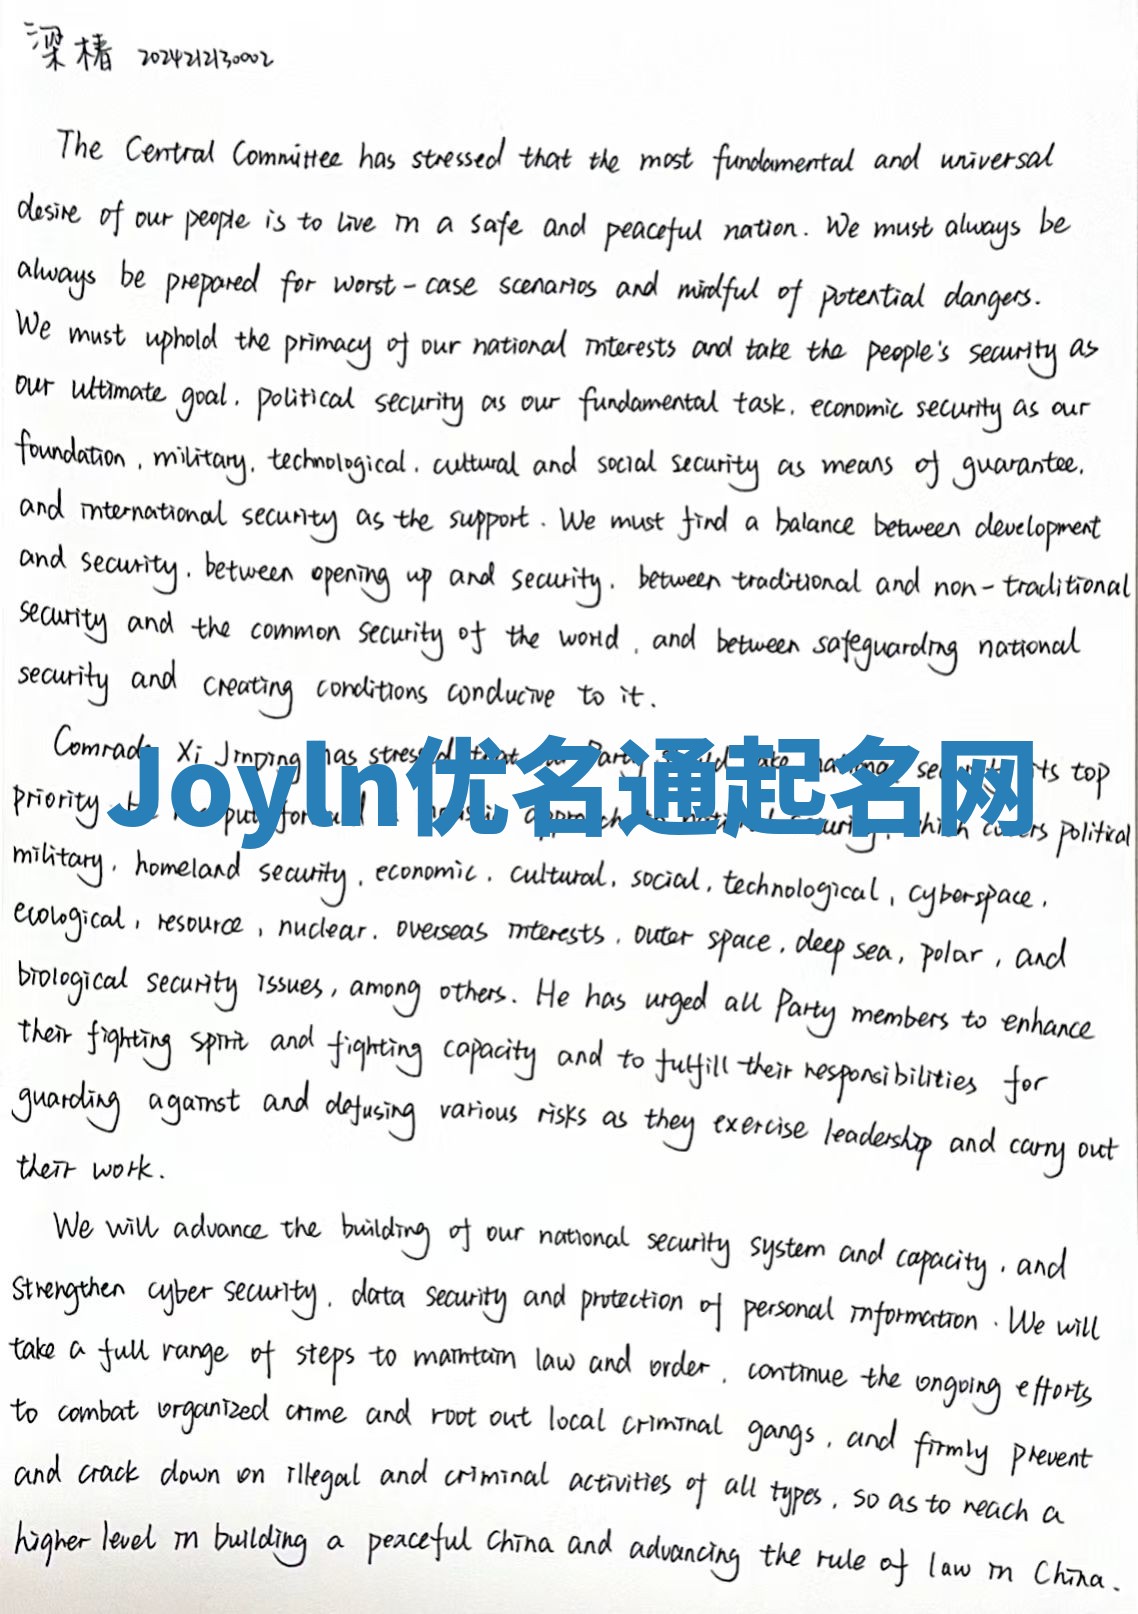 梁椿 2024212130002
The Central Committee has stressed that the most fundamental and universal
desire of our people is to live in a safe and peaceful nation. We must always be
always be prepared for worst-case scenarios and mindful of potential dangers.
We must uphold the primacy of our national interests and take the people's security as
our ultimate goal, political security as our fundamental task, economic security as our
foundation, military, technological, cultural and social security as means of guarantee,
and international security as the support. We must find a balance between development
and security, between opening up and security, between traditional and non-traditional
security and the common security of the world, and between safeguarding national
security and creating conditions conducive to it.
Comrade Xi Jinping has stressed that Party national its top
Joyln优名通起名网
priority put approach to which covers political
military, homeland security, economic, cultural, social, technological, cyberspace,
ecological, resource, nuclear, overseas interests, outer space, deep sea, polar, and
biological security issues, among others. He has urged all Party members to enhance
their fighting spirit and fighting capacity and to fulfill their responsibilities for
guarding against and defusing various risks as they exercise leadership and carry out
their work.
We will advance the building of our national security system and capacity, and
strengthen cyber security, data security and protection of personal information. We will
take a full range of steps to maintain law and order, continue the ongoing efforts
to combat organized crime and root out local criminal gangs, and firmly prevent
and crack down on illegal and criminal activities of all types, so as to reach a
higher level in building a peaceful China and advancing the rule of law in China.